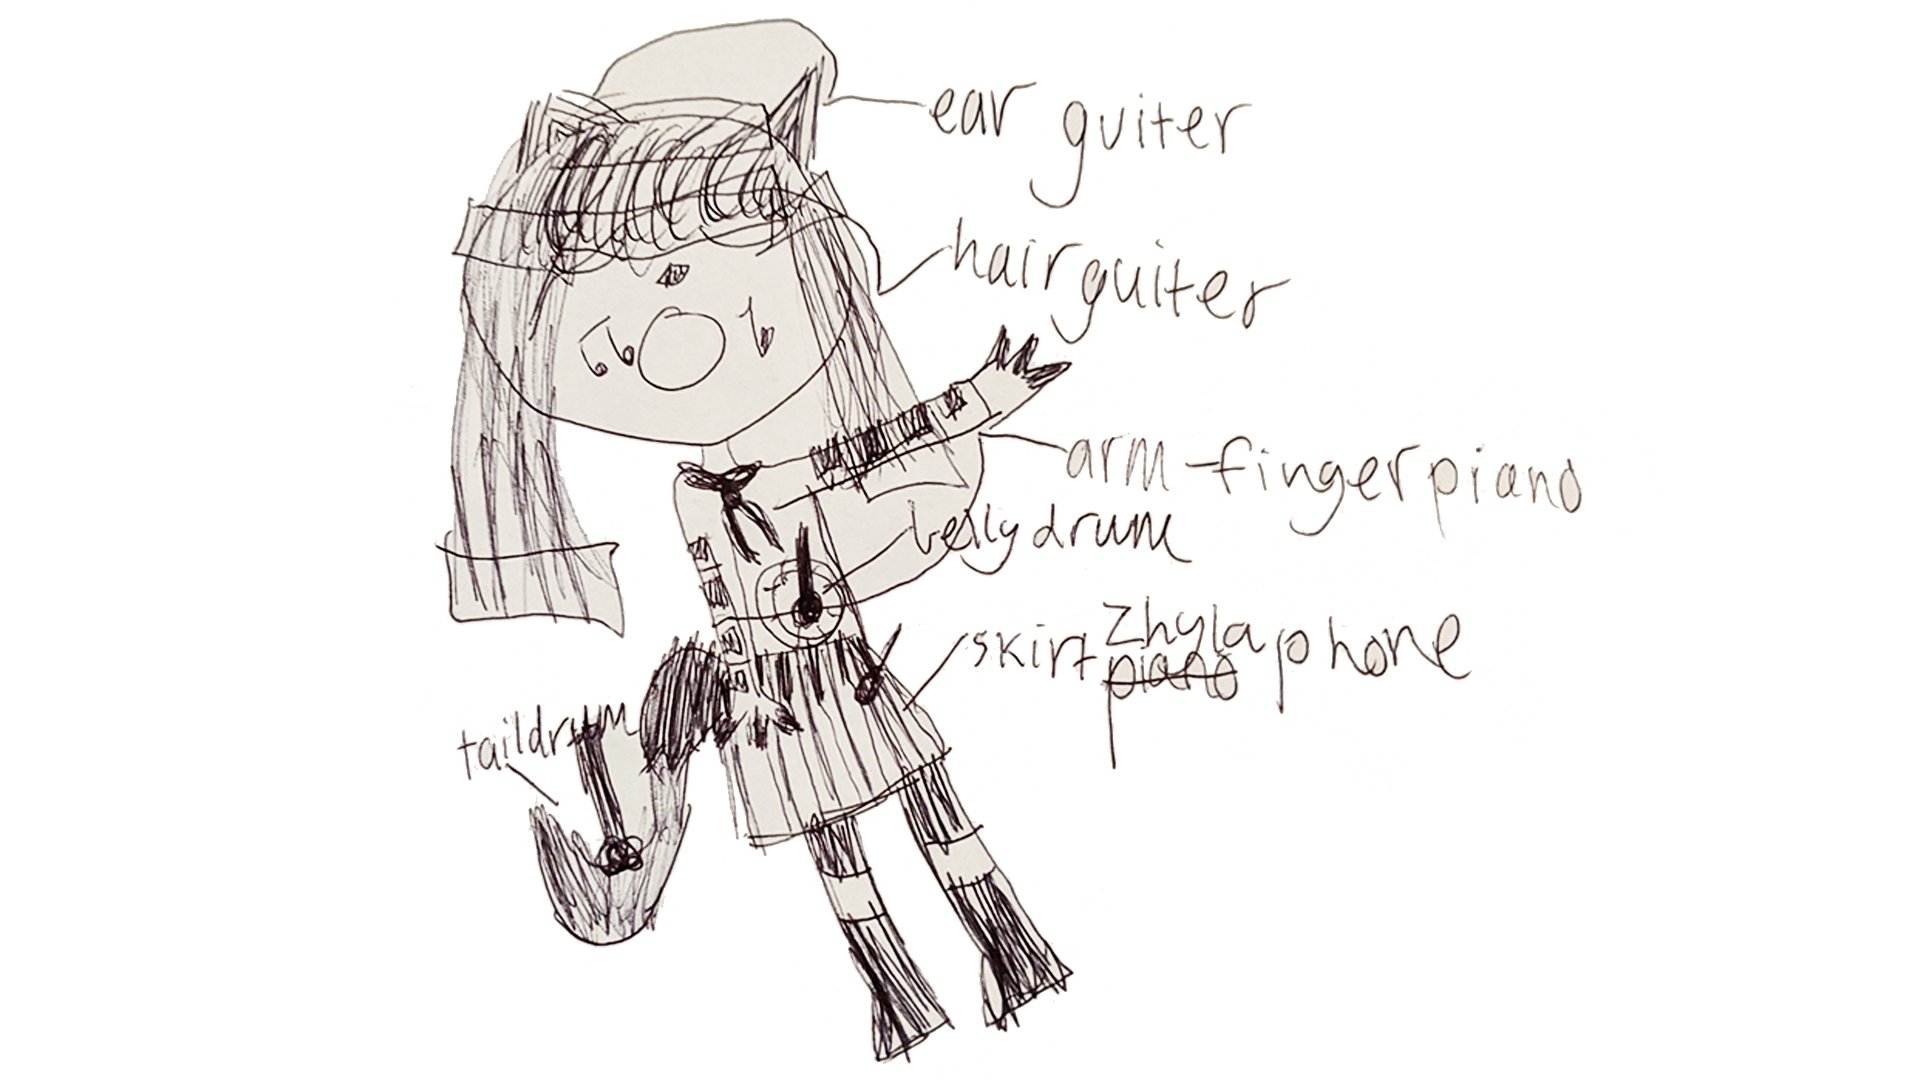 ear guiter
hair guiter
arm-finger piano
belly drum
skirt zhylaphone
piano
tail drum